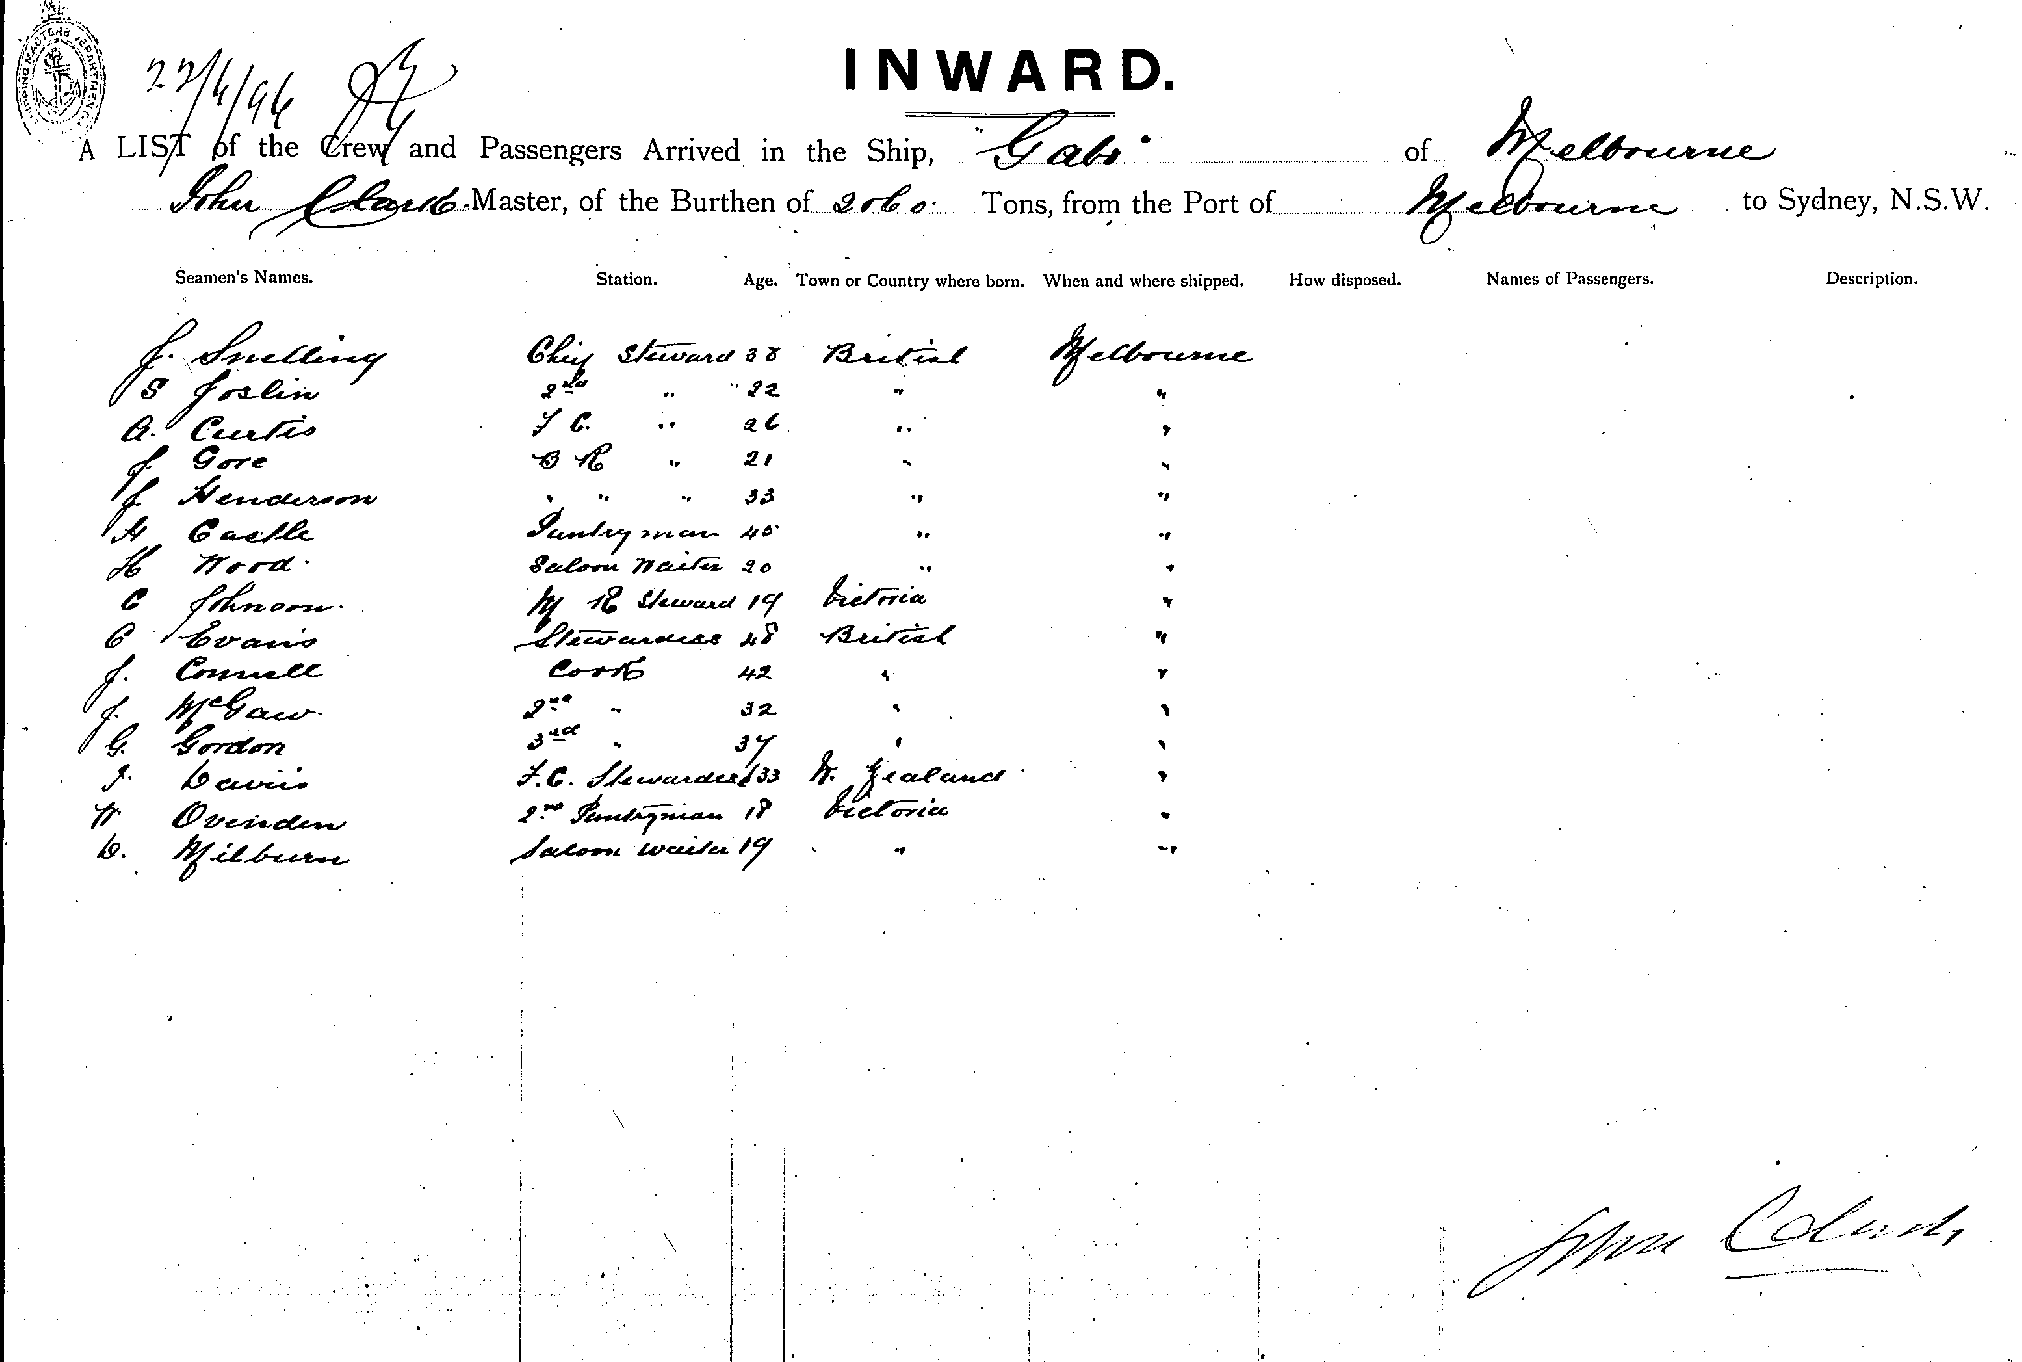 INWARD.
22/6/96
A LIST of the Crew and Passengers Arrived in the Ship, "Gabo" of Melbourne
John Clark Master, of the Burthen of 2060 Tons, from the Port of Melbourne to Sydney, N.S.W.
Seamen's Names. Station. Age. Town or Country where born. When and where shipped. How disposed. Names of Passengers. Description.
J. Snelling Chief Steward 38 British Melbourne
S Joslin 2nd " " 22 " "
A. Curtis F C. " 26 " "
J. Gore B R " 21 " "
J. Henderson " " " 33 " "
H Castle Pantryman 45 " "
H Wood. Saloon Waiter 20 " "
C Johnson. M R Steward 19 Victoria "
C Evans Stewardess 48 British "
J. Connell Cook 42 " "
J. McGaw. 2nd " 32 " "
G. Gordon 3rd " 37 " "
Davis F.C. Stewardess 33 N. Zealand "
W Ovenden 2nd Pantryman 18 Victoria "
D. Milburn Saloon Waiter 19 " "
John Clark